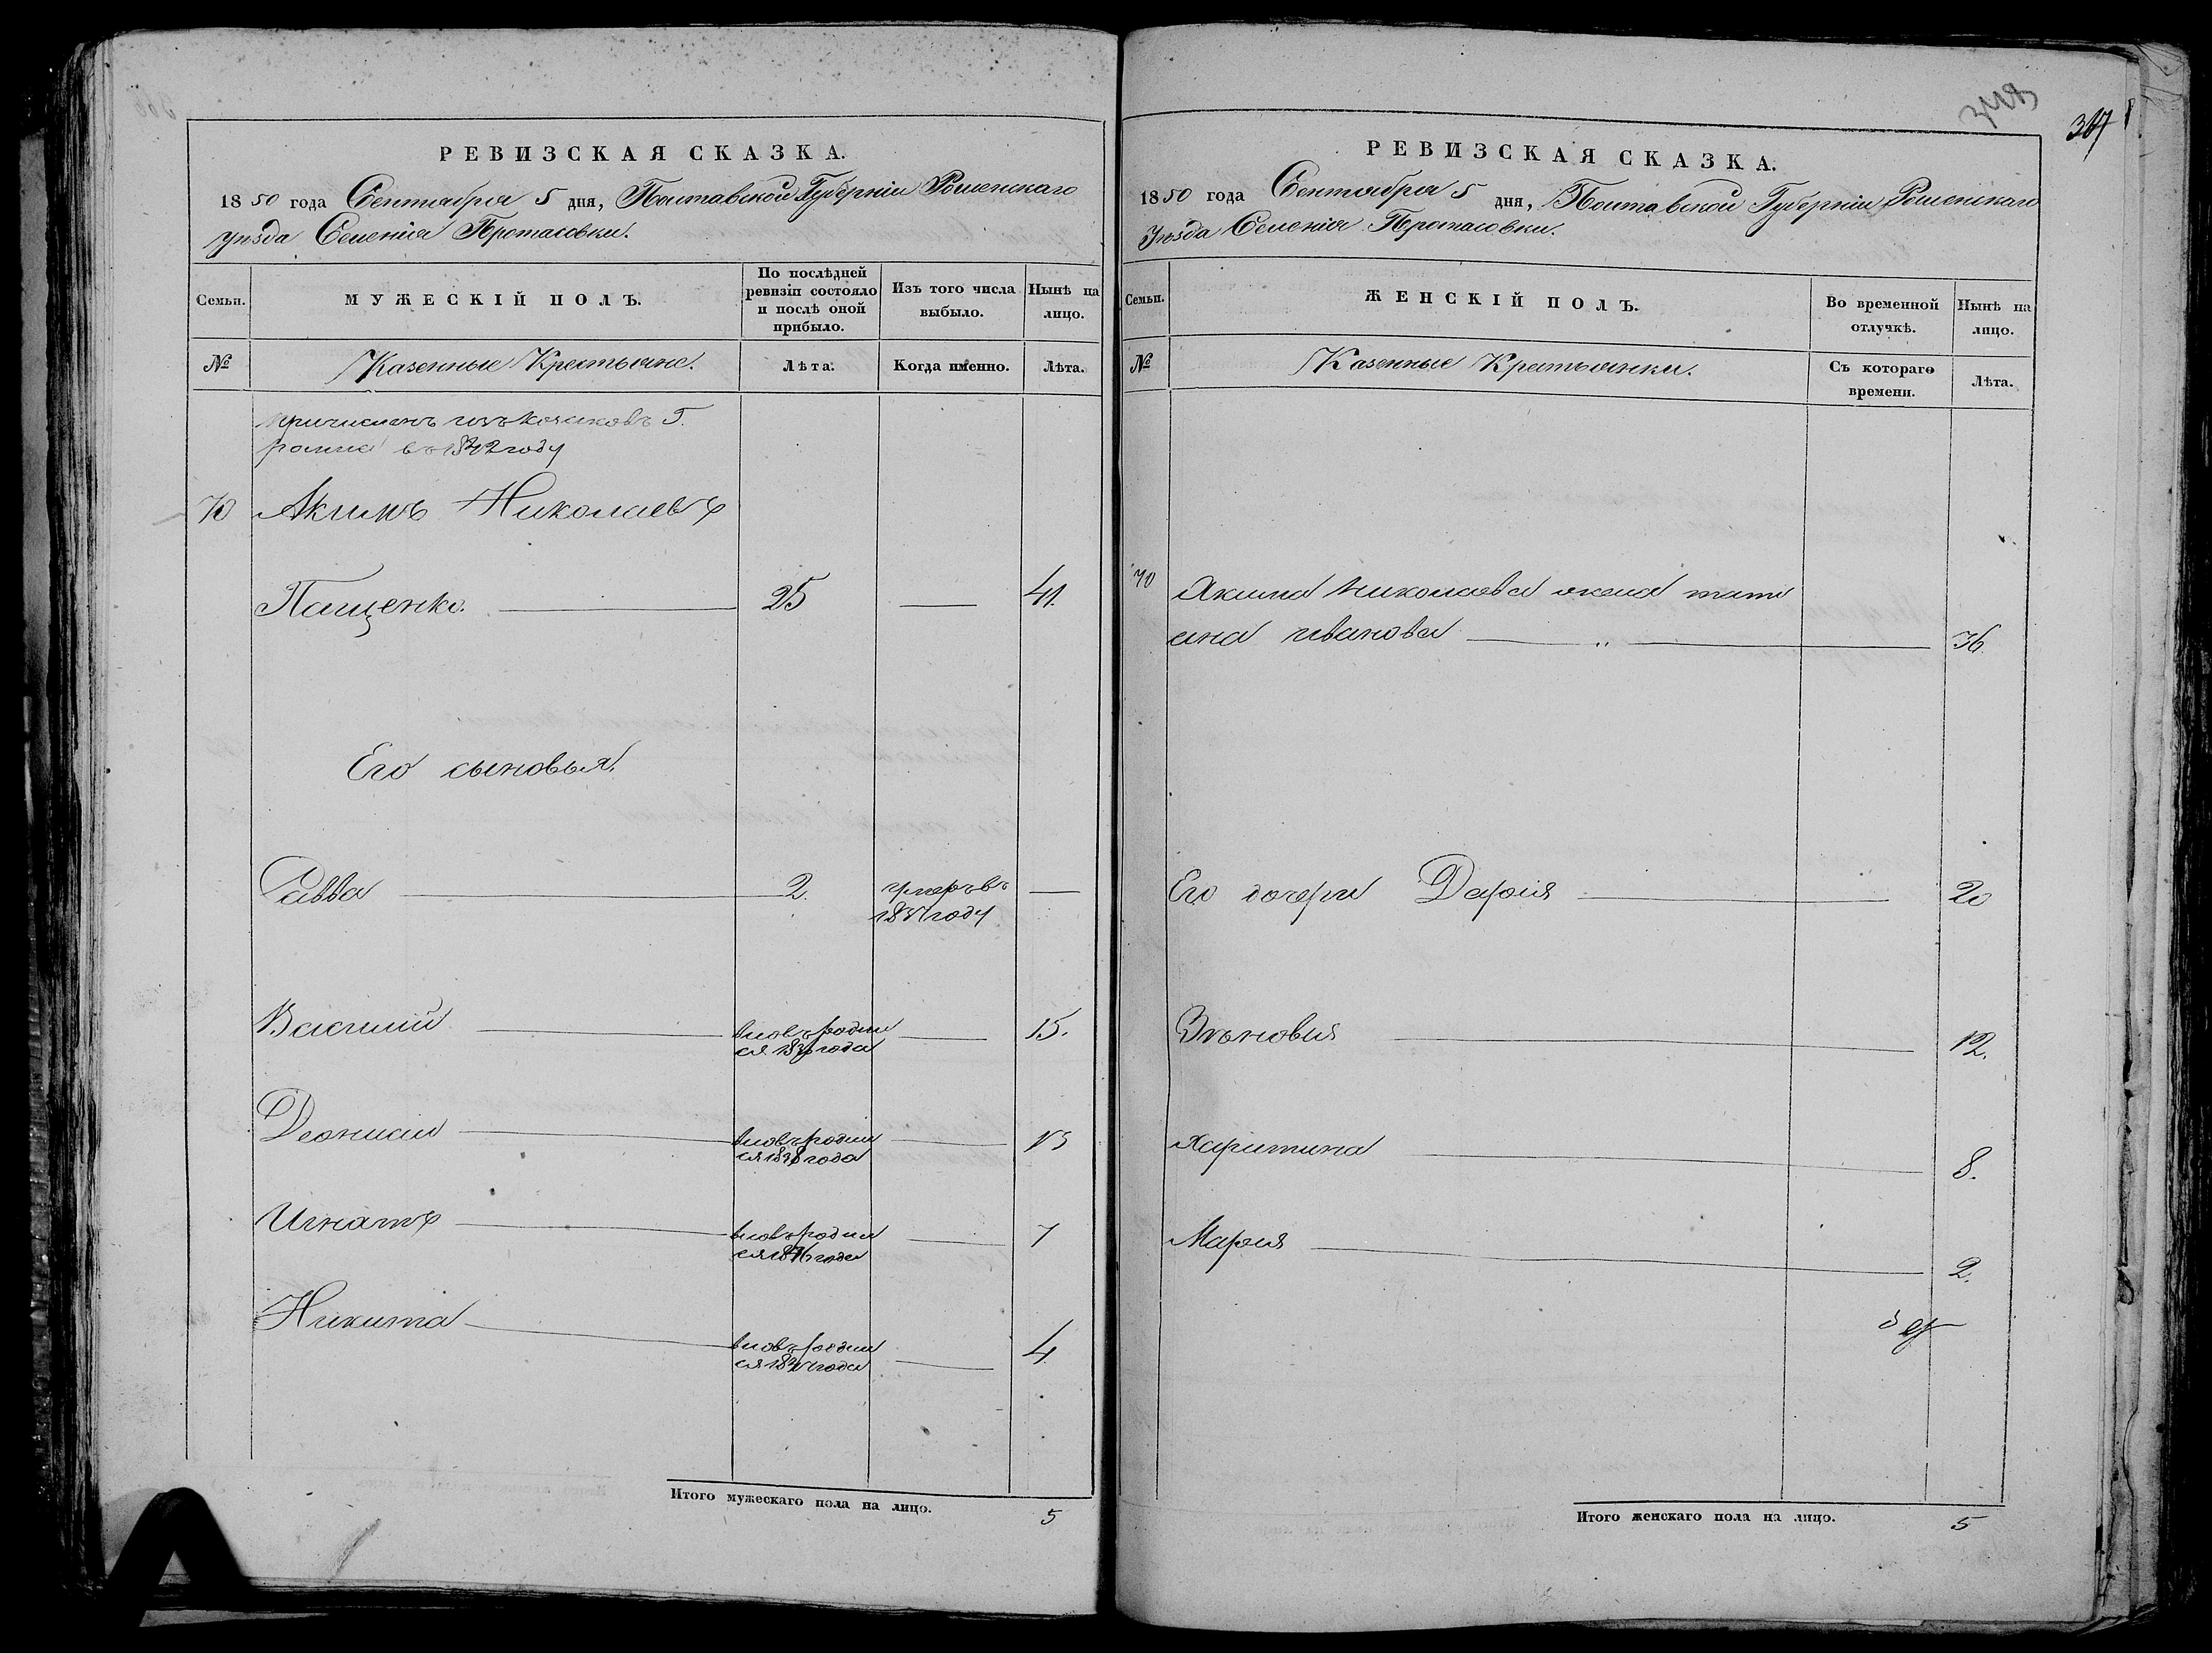 РЕВИЗСКАЯ СКАЗКА.
1850 года Сентября 5 дня, Полтавской Губерніи Роменскаго
уѣзда Селенія Протасовки.
Семьи.
МУЖЕСКІЙ ПОЛЪ.
По послѣдней ревизіи состояло и послѣ оной прибыло.
Изъ того числа выбыло.
Нынѣ на лицо.
№
Казенные Крестьяне.
Лѣта.
Когда именно.
Лѣта.
причисленъ изъ козаковъ Г.
ромна въ 1842 году
70 Акимъ Николаевъ
Пащенко. 25 — 41.
Его сыновья.
Савва 2. умеръ въ —
году
Василий вновь родил 15.
ся года
Деонисий вновь родил 13
ся 1838 года
Игнатъ вновь родил 7
ся года
Никита вновь родил 4.
ся года
Итого мужескаго пола на лицо. 5
367
РЕВИЗСКАЯ СКАЗКА.
1850 года Сентября 5 дня, Полтавской Губерніи Роменскаго
Уѣзда Селенія Протасовки.
Семьи.
ЖЕНСКІЙ ПОЛЪ.
Во временной отлучкѣ.
Нынѣ на лицо.
№
Казенные Крестьянки.
Съ котораго времени.
Лѣта.
70 Акима Николаева жена тати
ана иванова 36
Его дочери Дария 20
Зѣновия 12.
Харитина 8.
Мария 2.
Итого женскаго пола на лицо. 5